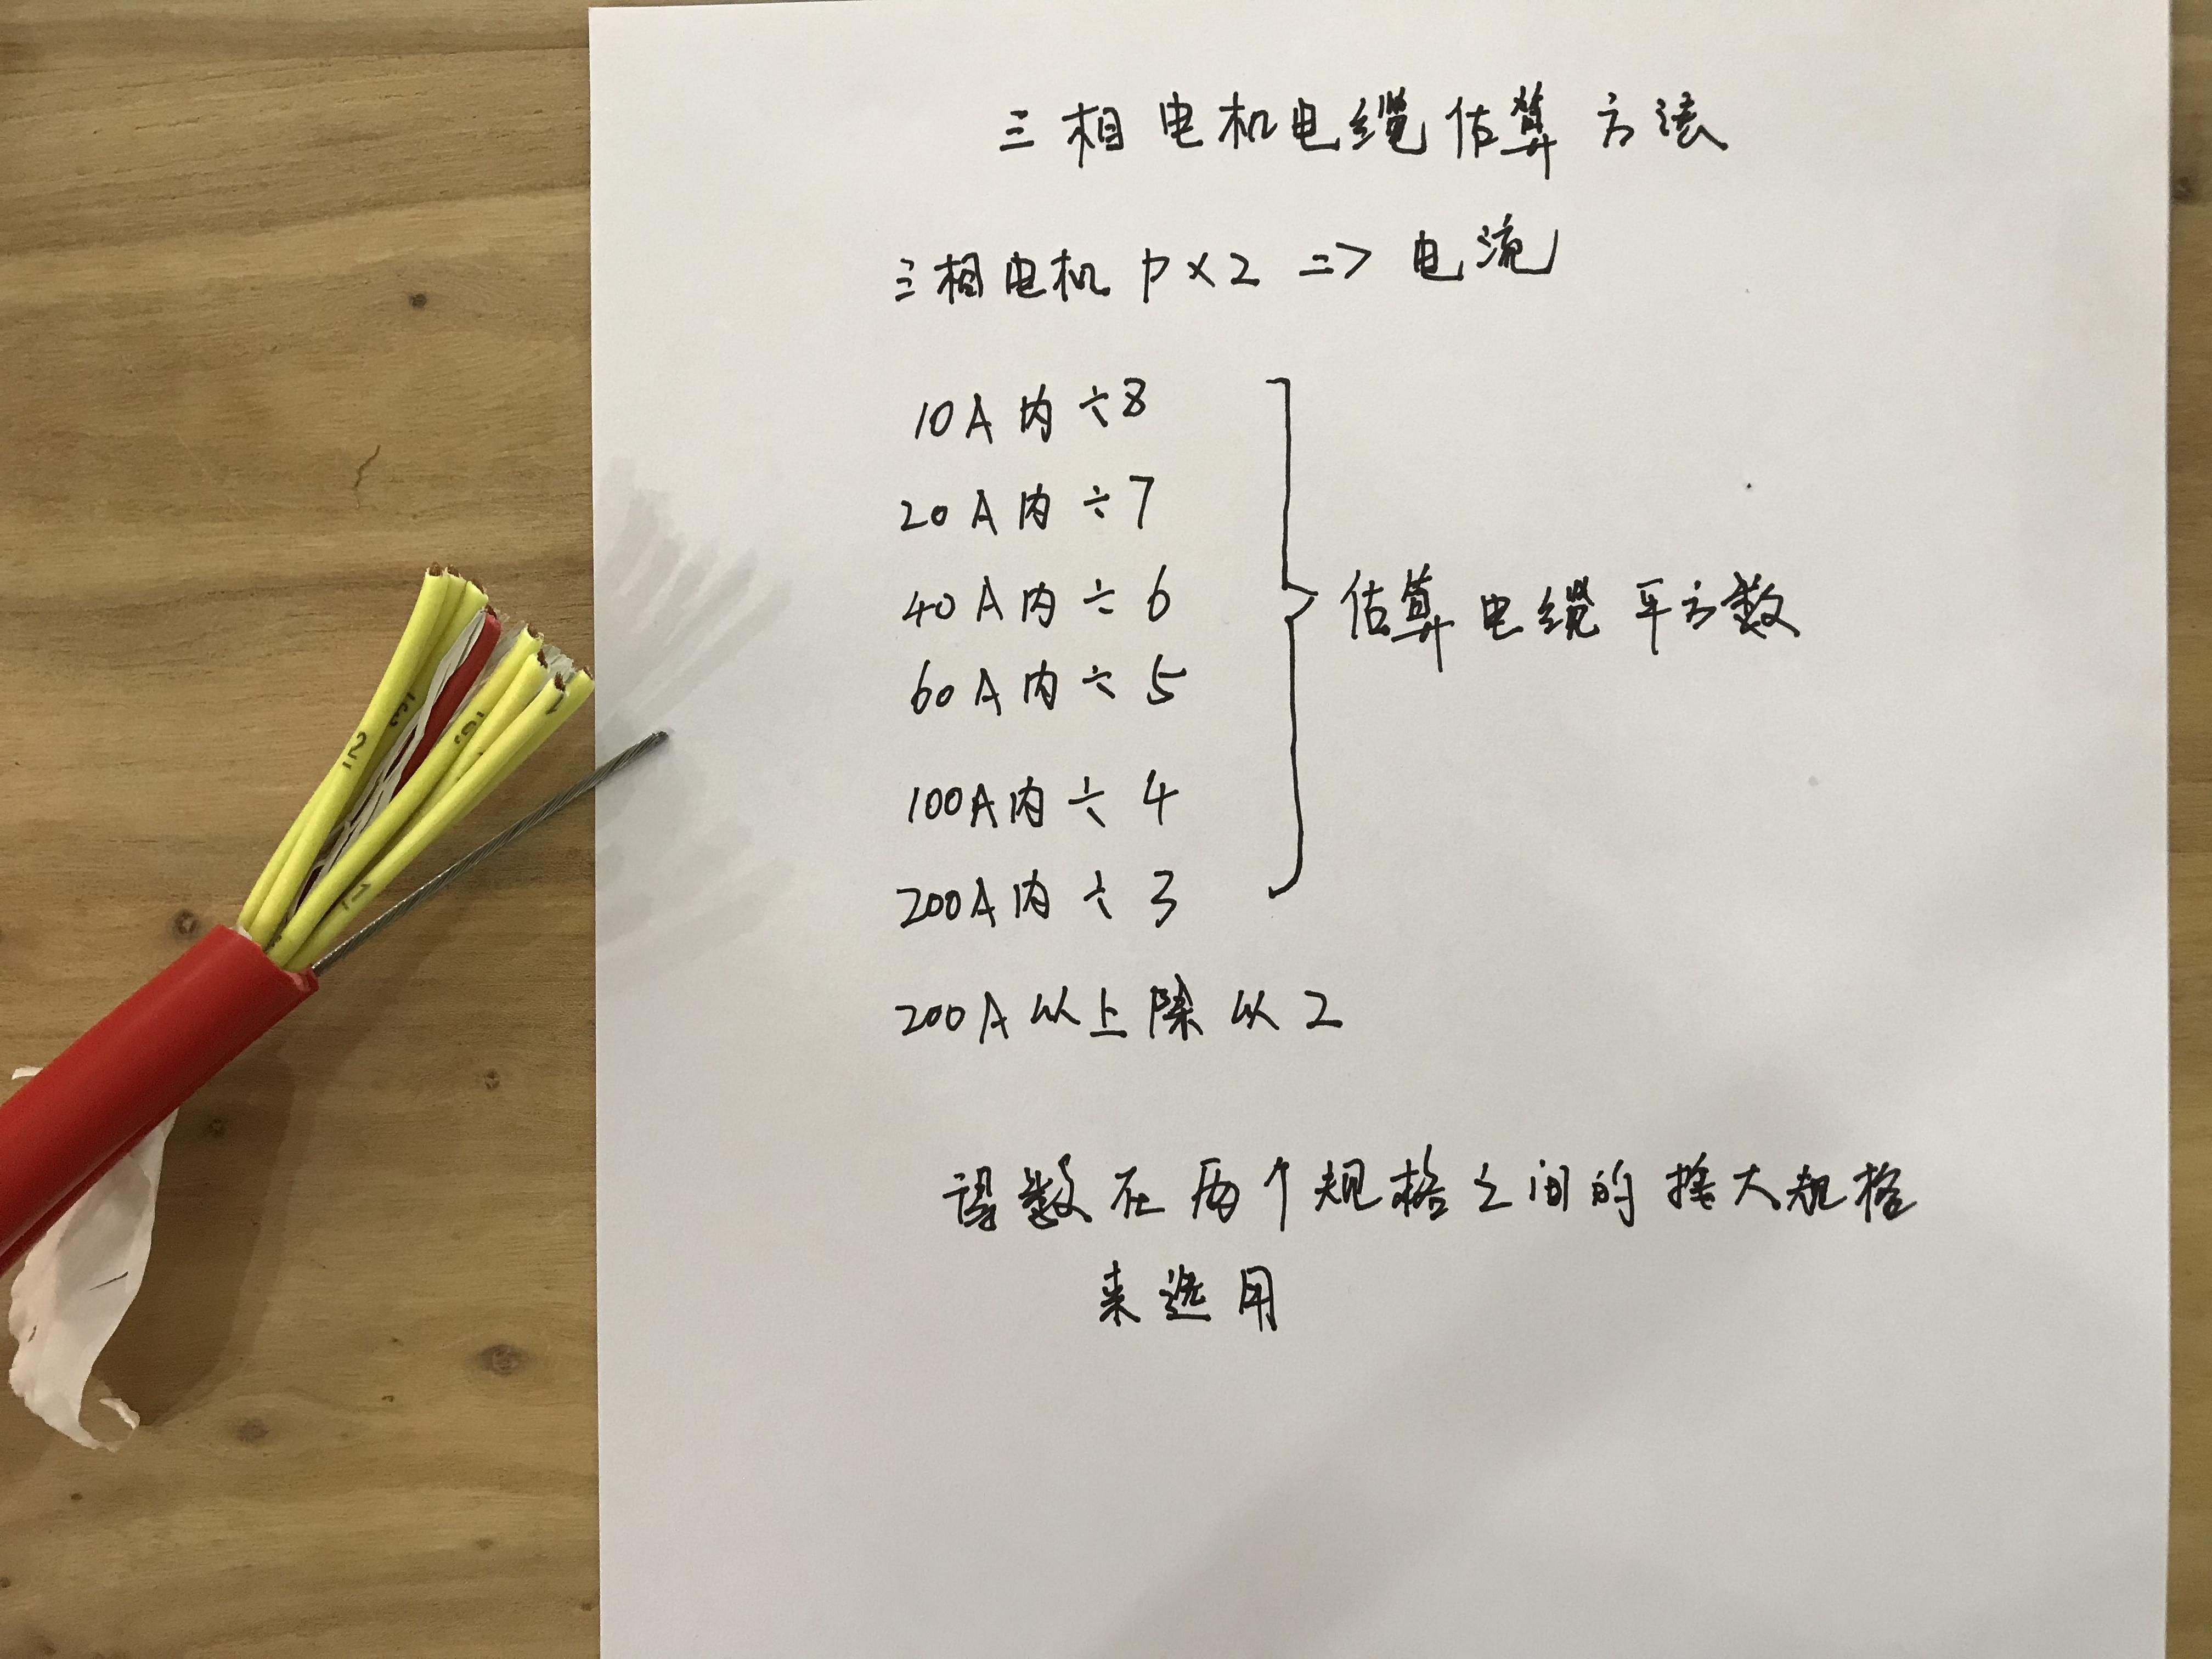 三相电机电缆估算方法
三相电机 P×2 => 电流
10A内 ÷8
20A内 ÷7
40A内 ÷ 6
60A内 ÷ 5
100A内 ÷ 4
200A内 ÷ 3
估算电缆平方数
200A以上除以2
得数在两个规格之间的择大规格
来选用